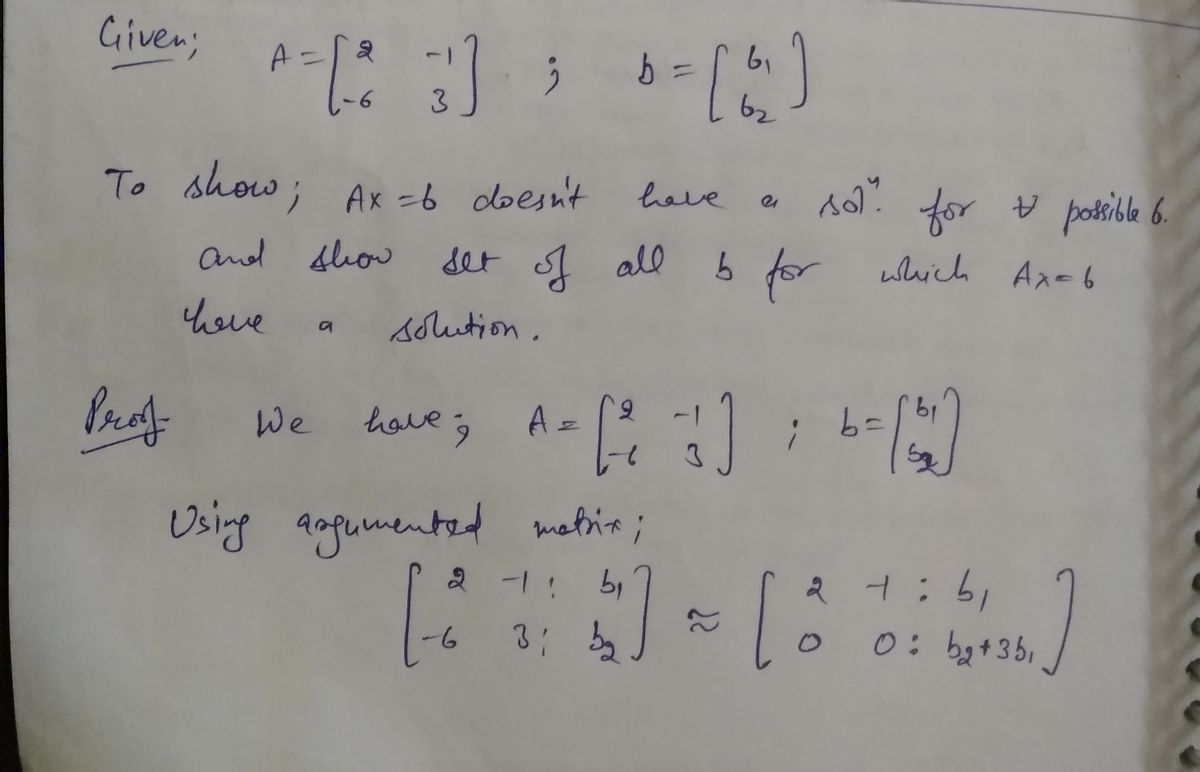 Given; A = [2 -1; -6 3] ; b = [b₁; b₂]
To show; Ax = b doesn't have a solⁿ. for ∀ possible b.
and show set of all b for which Ax = b
have a solution.
Proof- We have; A = [2 -1; -6 3] ; b = [b₁; b₂]
Using argumented matrix;
[2 -1 : b₁; -6 3 : b₂] ≈ [2 -1 : b₁; 0 0 : b₂+3b₁]